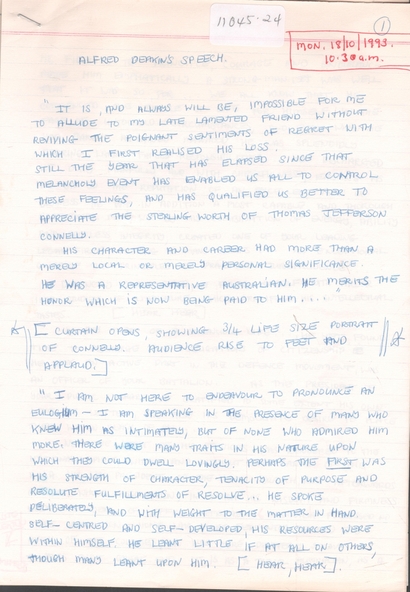 11045-24
1
MON. 18/10/1993.
10.30 a.m.
ALFRED DEAKIN'S SPEECH.
"IT IS, AND ALWAYS WILL BE, IMPOSSIBLE FOR ME
TO ALLUDE TO MY LATE LAMENTED FRIEND WITHOUT
REVIVING THE POIGNANT SENTIMENTS OF REGRET WITH
WHICH I FIRST REALISED HIS LOSS.
STILL THE YEAR THAT HAS ELAPSED SINCE THAT
MELANCHOLY EVENT HAS ENABLED US ALL TO CONTROL
THESE FEELINGS, AND HAS QUALIFIED US BETTER TO
APPRECIATE THE STERLING WORTH OF THOMAS JEFFERSON
CONNELLY.
HIS CHARACTER AND CAREER HAD MORE THAN A
MERELY LOCAL OR MERELY PERSONAL SIGNIFICANCE.
HE WAS A REPRESENTATIVE AUSTRALIAN. HE MERITS THE
HONOR WHICH IS NOW BEING PAID TO HIM...."
[CURTAIN OPENS, SHOWING 3/4 LIFE SIZE PORTRAIT
OF CONNELLY. AUDIENCE RISE TO FEET AND
APPLAUD.]
"I AM NOT HERE TO ENDEAVOUR TO PRONOUNCE AN
EULOGIUM - I AM SPEAKING IN THE PRESENCE OF MANY WHO
KNEW HIM AS INTIMATELY, BUT OF NONE WHO ADMIRED HIM
MORE. THERE WERE MANY TRAITS IN HIS NATURE UPON
WHICH THEY COULD DWELL LOVINGLY. PERHAPS THE FIRST WAS
HIS STRENGTH OF CHARACTER, TENACITY OF PURPOSE AND
RESOLUTE FULFILLMENTS OF RESOLVE... HE SPOKE
DELIBERATELY, AND WITH WEIGHT TO THE MATTER IN HAND.
SELF-CENTRED AND SELF-DEVELOPED, HIS RESOURCES WERE
WITHIN HIMSELF. HE LEANT LITTLE IF AT ALL ON OTHERS,
THOUGH MANY LEANT UPON HIM. [HEAR, HEAR].